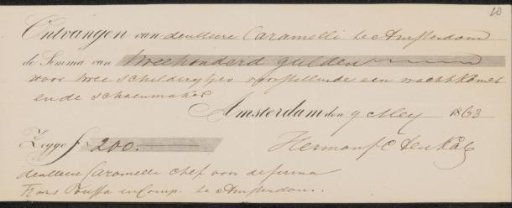 10
Ontvangen van den Heere Caramelli te Amsterdam
de Somma van tweehonderd gulden
voor twee schilderijtjes voorstellende een wachtkamer
en de schoenmaker
Amsterdam den 9 Mey 1863
Zegge f 200.—
Herman F C ten Kate
den Heere Caramelli chef van de firma
Frans Buffa en Comp. te Amsterdam.